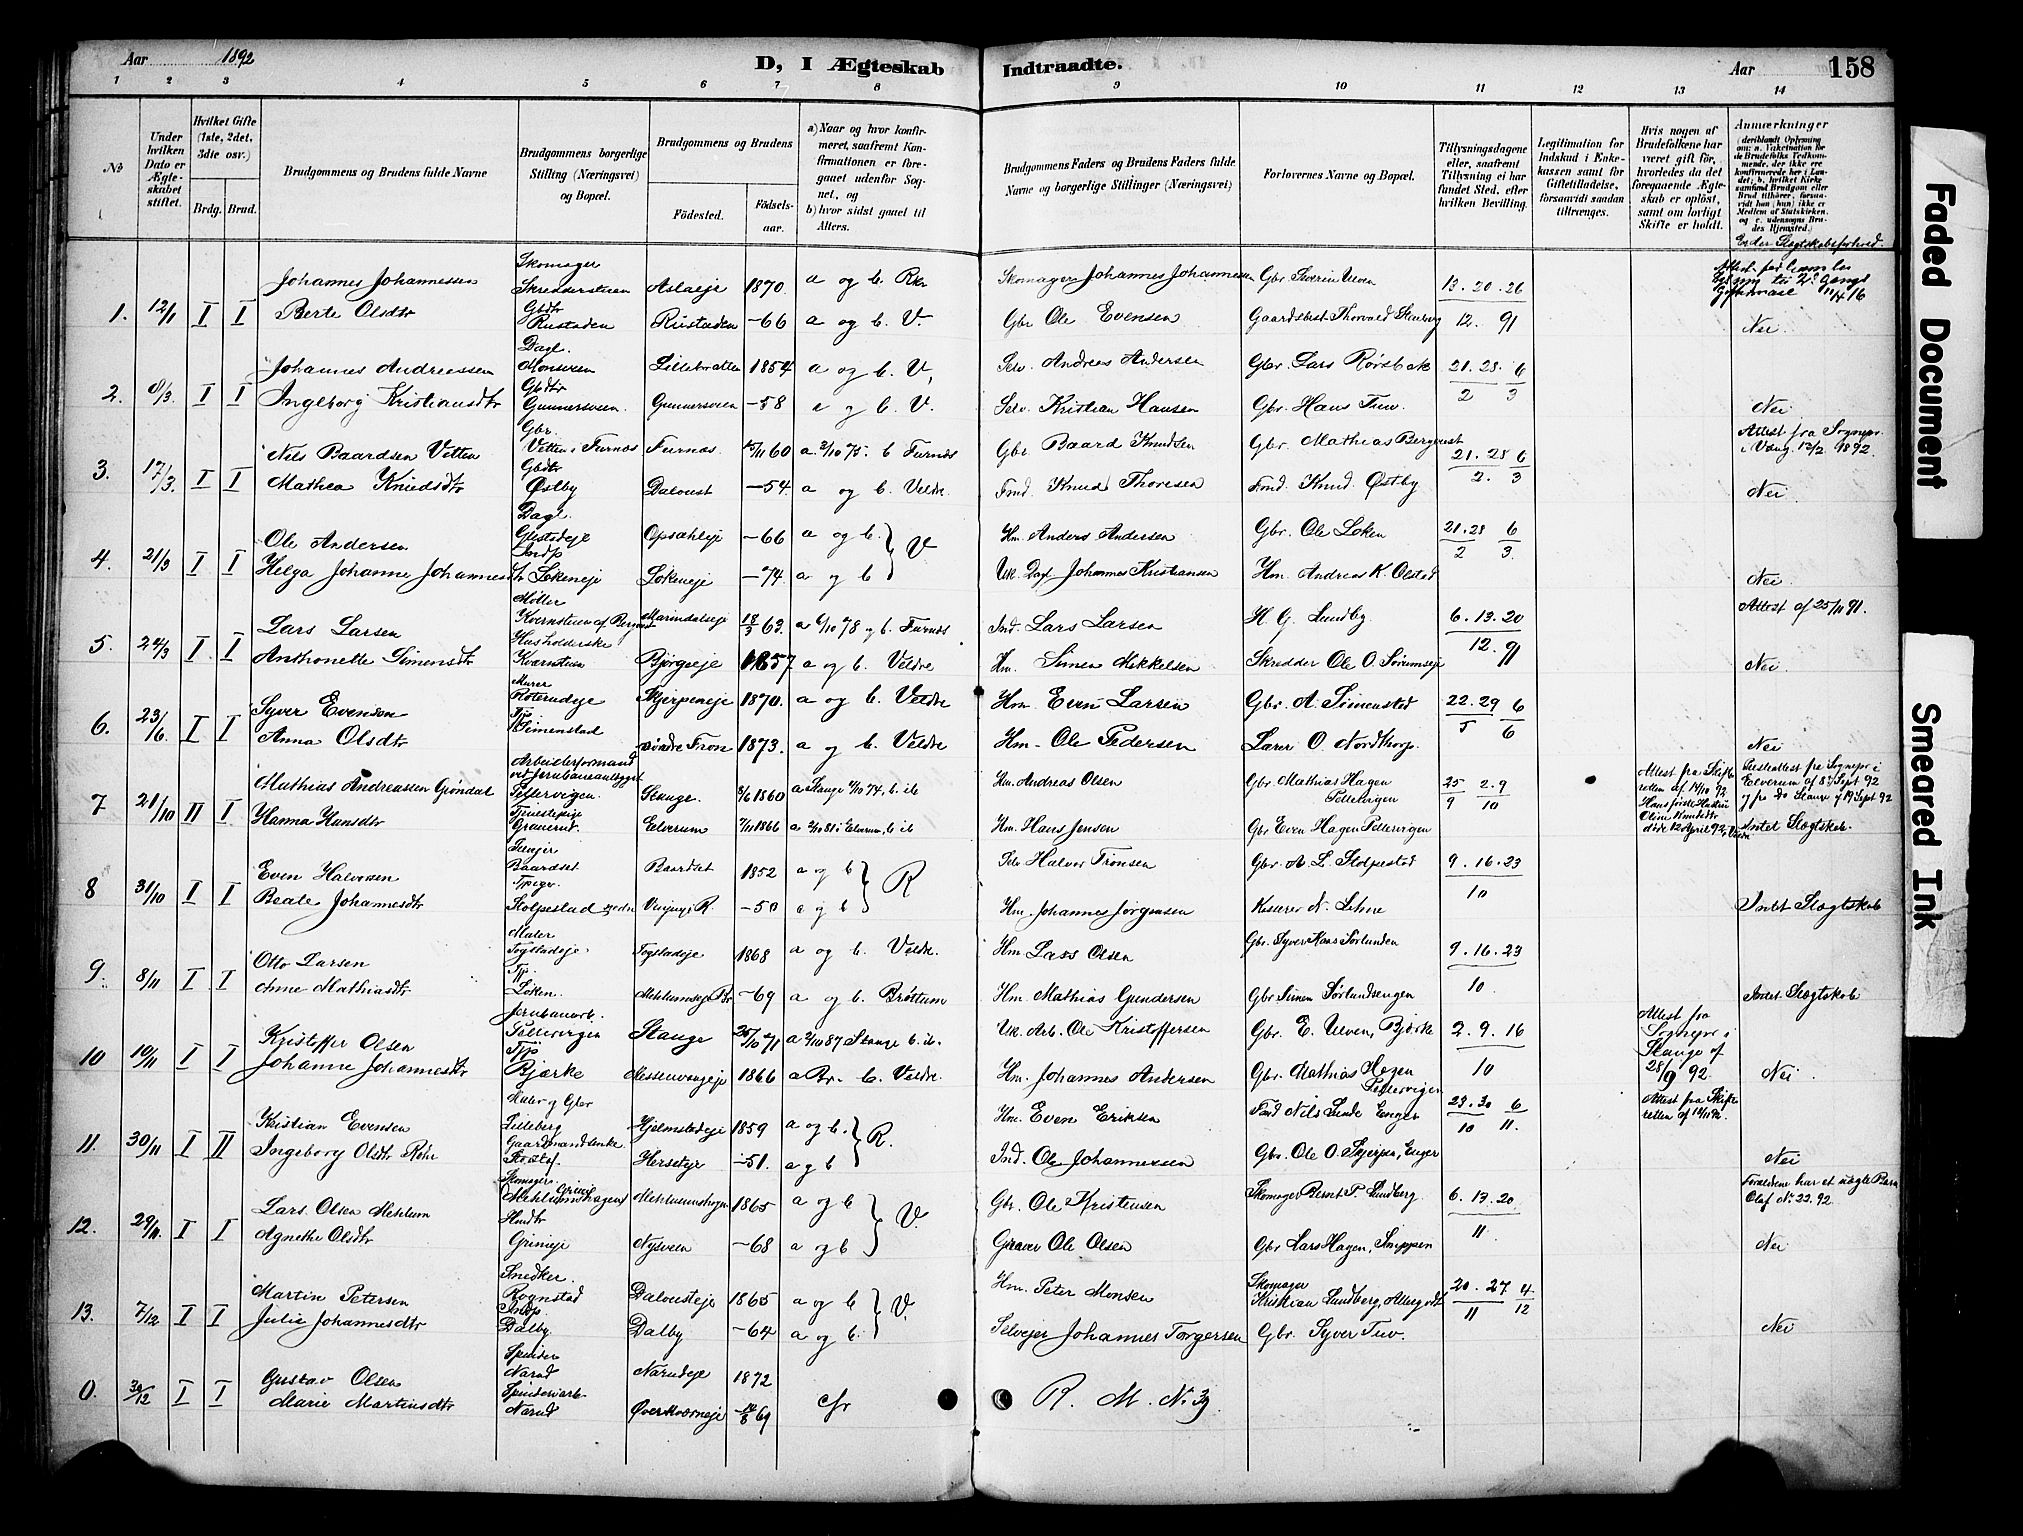 Aar 1892 D, I Ægteskab Indtraadte. Aar 158
1 2 3 4 5 6 7 8 9 10 11 12 13 14
№
Under hvilken Dato er Ægteskabet stiftet.
Hvilket Gifte (1ste, 2det, 3die osv.)
Brdg. Brud.
Brudgommens og Brudens fulde Navne
Brudgommens borgerlige Stilling (Næringsvei) og Bopæl.
Brudgommens og Brudens
Fødested.
Fødselsaar.
a) Naar og hvor konfirmeret, saafremt Konfirmationen er foregaaet udenfor Sognet, og
b) hvor sidst gaaet til Alters.
Brudgommens Faders og Brudens Faders fulde Navne og borgerlige Stillinger (Næringsvei)
Forlovernes Navne og Bopæl.
Tillysningsdagene eller, saafremt Tillysning ei har fundet Sted, efter hvilken Bevilling.
Legitimation for Indskud i Enkekassen samt for Giftetilladelse, forsaavidt saadan tiltrænges.
Hvis nogen af Brudefolkene har været gift før, hvorledes da det foregaaende Ægteskab er opløst, samt om lovligt Skifte er holdt.
Anmærkninger
Er der Slægtskabsforhold.
1. 12/1 I I
Johannes Johannessen Skomager Aslaeje 1870. a og b. Rkr
Skomager Johannes Johannessen Gbr Iverin Ulven 13. 20. 26
Berte Olsdtr Gbdtr Rustaden Rustaden —66 a og b. V.
Gbr Ole Evensen 12. 91 Nei
2. 8/3 I I
Johannes Andreassen Dagl. Monsveen 1854 a og b. V,
Selv. Andreas Andersen Gbr. Lars Rørsbak 21. 28. 6
Ingeborg Kristiansdtr Gbdtr Gunnersveen. Gunnersveen —58 a og b. V.
Selv. Kristian Hansen Gbr. Hans Tuv. 2 3 Nei
3. 17/3. I I
Nils Baardsen Vetten Gbr. Vetten i Furnæs Furnæs 15/11 60 a. 3/10 75. b Furnæs
Gbr Baard Knudsen Gbr. Mathias Bergqvist 21. 28 6
Attest fra Sognepr. i Vang 12/2 1892.
Mathea Knudsdtr Gbdtr Østby —54. a og b. Veldre.
Knud Thoresen Knud Østby 2. 3 Nei.
4. 21/3 I I
Ole Andersen Dagl. Opsahleje —66 a og b. V
Hm. Anders Andersen Gbr. Ole Løken 21. 28 6
Helga Johanne Johannesdtr Indp Løkeneje Løkeneje —74. a og b
Johannes Kristiansen Hm. Andreas K. Olstad 2 3. Nei.
5. 24/3 I I
Lars Larsen Møller 18/3 63. a 6/10 78 og b. Furnæs
Ind. Lars Larsen H. G. Lundby 6. 13. 20
Attest af 25/11 91.
Anthonette Simensdtr Husholderske Bjørgeeje 1857 a og b. Veldre
Hm. Simen Mikkelsen Skredder Ole O. Sørumseje 12. 91 Nei.
6. 23/6. I I
Syver Evensen Murer Roterudeje Skjerpeneje 1870. a og b. Veldre
Hm. Even Larsen Gbr. A. Simenstad 22. 29 6
Anna Olsdtr Tjp Simenstad Søndre Fron 1873. a og b. Veldre
Hm. Ole Pedersen Lærer O. Nordthorp. 5 6 Nei
7 21/10 II I
Mathias Andreassen Grøndal Arbeiderformand ved Jernbaneanlægget Pellervigen. Stange. 8/6 1860 a Stange 4/10 74, b ib
Hm. Andreas Olsen Gbr. Mathias Hagen Pellervigen 25 2. 9
Attest fra Skifteretten af 14/10 92 Hans første Hustru Oline Knudsdtr døde 12 April 92, Veldre
Præsteattest fra Sognepr i Elverum af 8de Sept 92 og fra do Stange 19 Sept 92
Hanna Hansdtr Elverum 7/11 1866 a 2/10 81 i Elverum, b ib
Hm. Hans Jensen Gbr Even Hagen Pellervigen 9 10 Intet Slægtskab.
8 31/10 I I
Even Halvorsen Baardset Baardset 1852 a og b R
Selv Halvor Tronsen Gbr. A. L. Stolpestad 9. 16. 23
Beate Johannesdtr Tjpige. Stolpestad —50 a og b
Hm. Johannes Jørgensen Kasserer N. Lehne 10 Intet Slægtskab
9. 8/11 I I
Otto Larsen Maler Fogstadeje. Fogstadeje 1868 a og b. Veldre.
Hm Lars Olsen Gbr. Syver Kaas Sørlunden 9. 16. 23
Anne Mathiasdtr Tjp. Løken. Mehlumseje Br —69 a og b. Brøttum
Hm. Mathias Gundersen Gbr Simen Sørlundsengen 10 Intet Slægtskab
10 19/11 I I
Kristoffer Olsen Jernbanearb. Pellervigen Stange 25/10 71 a 2/10 87 Stange b. ib.
Uk. Arb. Ole Kristoffersen Gbr. E. Ulven, Bjørke 2. 9. 16
Attest fra Sognepr i Stange af 28/9 92.
Johanne Johannesdtr Tjp Bjærke Messenvangeje 1866 a Br. b. Veldre.
Hm. Johannes Andersen Gbr. Mathias Hagen Pellervigen 10 Nei
11. 30/11 I II
Kristian Evensen Maler og Gbr Lilleberg Hjelmstadeje 1859 a og b. R.
Hm. Even Eriksen Nils Lunde Enger 23. 30 6
Attest fra Skifteretten af 14/11 92.
Ingeborg Olsdtr Røhr Gaardmandsenke Herseteje —51. a og b
Ind. Ole Johannessen Gbr. Ole O. Skjerpen, Enger 10 11. Nei
12. 29/11. I I
Lars Olsen Mehlum Skomager. Mehlumshagen 1865 a og b V.
Gbr. Ole Kristensen Skomager Bernt P. Lundberg. 6. 13. 20.
Forældrene har et uægte Barn Olaf No 22. 92.
Agnethe Olsdtr Grimeje Nysveen —68 a og b
Graver Ole Olsen Gbr Lars Hagen, Snippen 11 Nei
13. 7/12 I I
Martin Petersen Snedker. Rognstad Dalousteje 1865 a og b V.
Hm. Peter Monsen Skomager Kristian Lundberg, 20. 27 4.
Julie Johannesdtr Indp. Dalby Dalby —64 a og b.
Selvejer Johannes Torgersen Gbr. Syver Tuv. 11 12 Nei
0. 30/12 I I
Gustav Olsen Spinder Narud Narudeje 1872
Marie Martinsdtr Spinderiarb. Narud Øverkværneje 14/8 69 cfr
R. M. No 39.
Faded Document
Smeared Ink